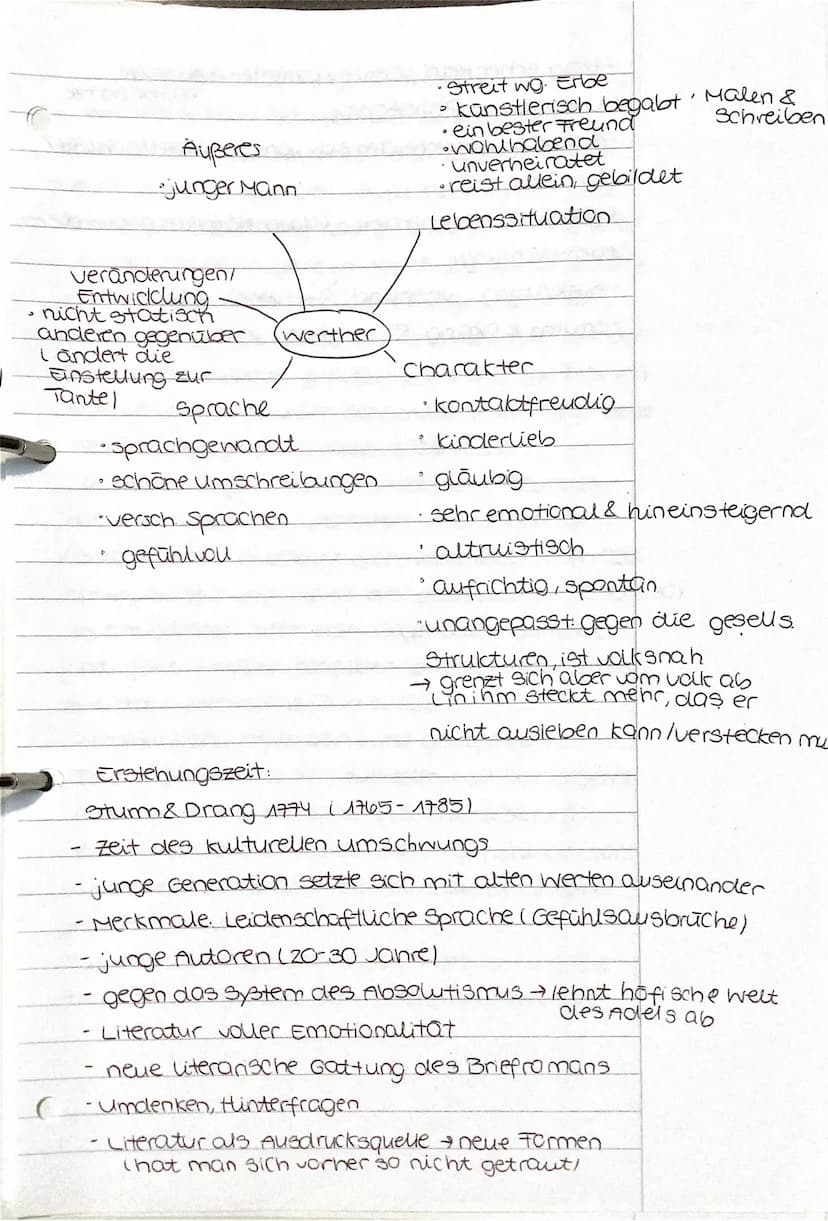 · Streit wg. Erbe
· künstlerisch begabt · Malen &
Schreiben
· ein bester Freund
· wohlhabend
· unverheiratet
· reist allein, gebildet
Lebenssituation
Äußeres
· junger Mann
Veränderungen/
Entwicklung
· nicht statisch
anderen gegenüber
( ändert die
Einstellung zur
Tante)
Werther
Sprache
· sprachgewandt
· schöne Umschreibungen
· versch. Sprachen
· gefühlvoll
Charakter
· kontaktfreudig
· kinderlieb
· gläubig
· sehr emotional & hineinsteigernd
· altruistisch
· aufrichtig, spontan
· unangepasst gegen die gesells.
Strukturen, ist volksnah
→ grenzt sich aber vom Volk ab
↳ in ihm steckt mehr, das er
nicht ausleben kann/verstecken mu
Erstehungszeit:
Sturm & Drang 1774 (1765-1785)
- Zeit des kulturellen Umschwungs
- junge Generation setzte sich mit alten Werten auseinander
- Merkmale: Leidenschaftliche Sprache (Gefühlsausbrüche)
- junge Autoren (20-30 Jahre)
- gegen das System des Absolutismus → lehnt höfische Welt
des Adels ab
- Literatur voller Emotionalität
- neue literarische Gattung des Briefromans
- Umdenken, Hinterfragen
- Literatur als Ausdrucksquelle → neue Formen
(hat man sich vorher so nicht getraut)